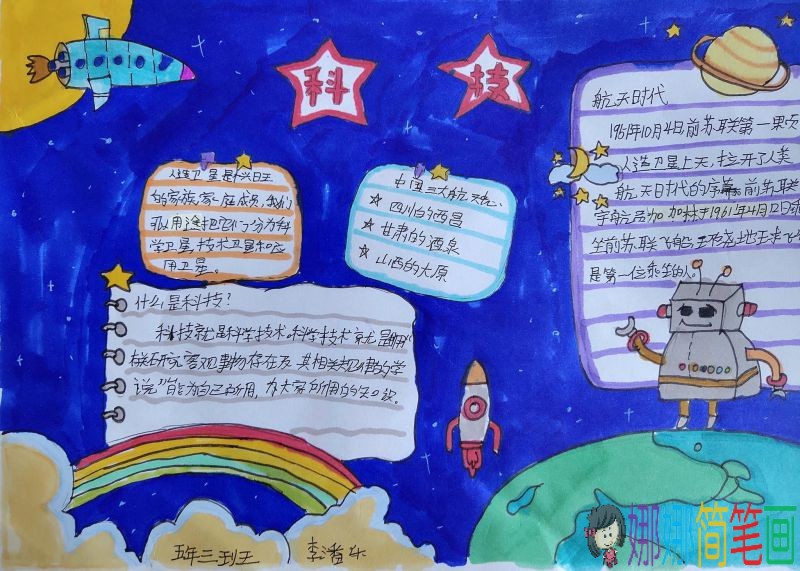 科技
人造卫星是
的家族
用途把它们分为科
学卫星,技术卫星和应
用卫星。
中国三大航天
四川的西昌
甘肃的酒泉
山西的太原
航天时代
10月4日,前苏联第一颗
人造卫星上天,拉开了人类
航天时代的序幕。前苏联
宇航员加加林于1961年4月12日
坐前苏联飞船环绕地球
是第一位乘坐的人。
什么是科技?
科技就是科学技术。科学技术就是
研究客观事物存在及其相关规律的学
说,能为自己所用,为大家所用的知识。
五年三班
李潘东
娜娜简笔画